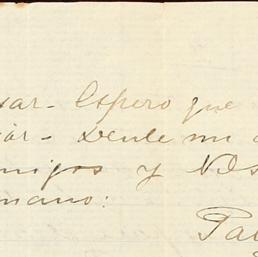 sar - Espero que
ar - Denle mi a
migos y Uds
mano:
Pa